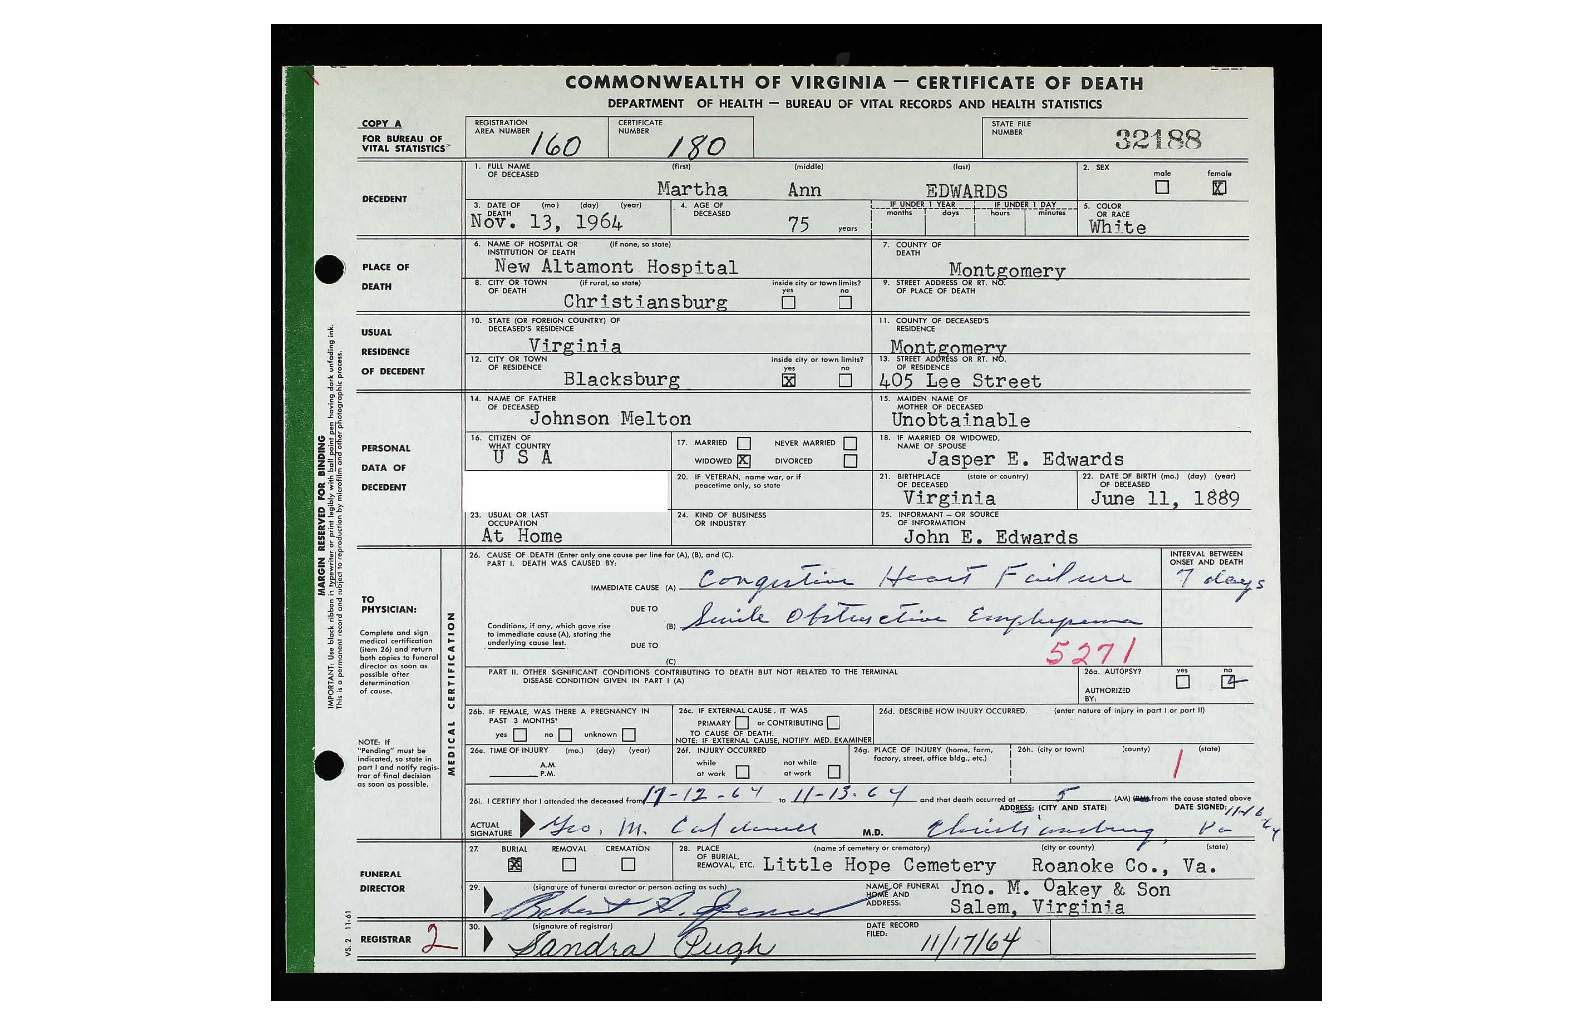 COMMONWEALTH OF VIRGINIA — CERTIFICATE OF DEATH
DEPARTMENT OF HEALTH — BUREAU OF VITAL RECORDS AND HEALTH STATISTICS
COPY A
FOR BUREAU OF VITAL STATISTICS
REGISTRATION AREA NUMBER 160
CERTIFICATE NUMBER 180
STATE FILE NUMBER 32188
DECEDENT
1. FULL NAME OF DECEASED (first) (middle) (last)
Martha Ann EDWARDS
2. SEX male female X
3. DATE OF DEATH (mo) (day) (year)
Nov. 13, 1964
4. AGE OF DECEASED 75 years
IF UNDER 1 YEAR months days
IF UNDER 1 DAY hours minutes
5. COLOR OR RACE
White
PLACE OF DEATH
6. NAME OF HOSPITAL OR INSTITUTION OF DEATH (if none, so state)
New Altamont Hospital
7. COUNTY OF DEATH
Montgomery
8. CITY OR TOWN OF DEATH (if rural, so state)
Christiansburg
inside city or town limits? yes no
9. STREET ADDRESS OR RT. NO. OF PLACE OF DEATH
USUAL RESIDENCE OF DECEDENT
10. STATE (OR FOREIGN COUNTRY) OF DECEASED'S RESIDENCE
Virginia
11. COUNTY OF DECEASED'S RESIDENCE
Montgomery
12. CITY OR TOWN OF RESIDENCE
Blacksburg
inside city or town limits? yes X no
13. STREET ADDRESS OR RT. NO. OF RESIDENCE
405 Lee Street
PERSONAL DATA OF DECEDENT
14. NAME OF FATHER OF DECEASED
Johnson Melton
15. MAIDEN NAME OF MOTHER OF DECEASED
Unobtainable
16. CITIZEN OF WHAT COUNTRY
U S A
17. MARRIED NEVER MARRIED
WIDOWED X DIVORCED
18. IF MARRIED OR WIDOWED, NAME OF SPOUSE
Jasper E. Edwards
20. IF VETERAN, name war, or if peacetime only, so state
21. BIRTHPLACE (state or country) OF DECEASED
Virginia
22. DATE OF BIRTH (mo.) (day) (year) OF DECEASED
June 11, 1889
23. USUAL OR LAST OCCUPATION
At Home
24. KIND OF BUSINESS OR INDUSTRY
25. INFORMANT — OR SOURCE OF INFORMATION
John E. Edwards
MARGIN RESERVED FOR BINDING
IMPORTANT: Use black ribbon in typewriter or print legibly with ball point pen having dark unfading ink.
This is a permanent record and subject to reproduction by microfilm and other photographic process.
TO PHYSICIAN:
Complete and sign medical certification (item 26) and return both copies to funeral director as soon as possible after determination of cause.
NOTE: If "Pending" must be indicated, so state in part I and notify registrar of final decision as soon as possible.
MEDICAL CERTIFICATION
26. CAUSE OF DEATH (Enter only one cause per line for (A), (B), and (C).
PART I. DEATH WAS CAUSED BY:
INTERVAL BETWEEN ONSET AND DEATH
IMMEDIATE CAUSE (A) Congestive Heart Failure 7 days
DUE TO
Conditions, if any, which gave rise to immediate cause (A), stating the underlying cause last.
(B) Senile Obstructive Emphysema
DUE TO
(C)
5271
PART II. OTHER SIGNIFICANT CONDITIONS CONTRIBUTING TO DEATH BUT NOT RELATED TO THE TERMINAL DISEASE CONDITION GIVEN IN PART I (A)
26a. AUTOPSY? yes no
AUTHORIZED BY:
26b. IF FEMALE, WAS THERE A PREGNANCY IN PAST 3 MONTHS?
yes no unknown
26c. IF EXTERNAL CAUSE, IT WAS
PRIMARY or CONTRIBUTING
TO CAUSE OF DEATH.
NOTE: IF EXTERNAL CAUSE, NOTIFY MED. EXAMINER
26d. DESCRIBE HOW INJURY OCCURRED. (enter nature of injury in part I or part II)
26e. TIME OF INJURY (mo.) (day) (year)
A.M.
P.M.
26f. INJURY OCCURRED
while at work not while at work
26g. PLACE OF INJURY (home, farm, factory, street, office bldg., etc.)
26h. (city or town) (county) (state)
26i. I CERTIFY that I attended the deceased from to 11-13-64 and that death occurred at 5 (AM) from the cause stated above
ACTUAL SIGNATURE Geo. M. Caldwell M.D.
ADDRESS: (CITY AND STATE) Christiansburg, Va
DATE SIGNED: 11-16-64
FUNERAL DIRECTOR
27. BURIAL X REMOVAL CREMATION
28. PLACE OF BURIAL, REMOVAL, ETC. (name of cemetery or crematory) (city or county) (state)
Little Hope Cemetery Roanoke Co., Va.
29. (signature of funeral director or person acting as such)
Robert H. Spence
NAME OF FUNERAL HOME AND ADDRESS:
Jno. M. Oakey & Son
Salem, Virginia
VS. 2 11-61
REGISTRAR 2
30. (signature of registrar)
Sandra Pugh
DATE RECORD FILED: 11/17/64